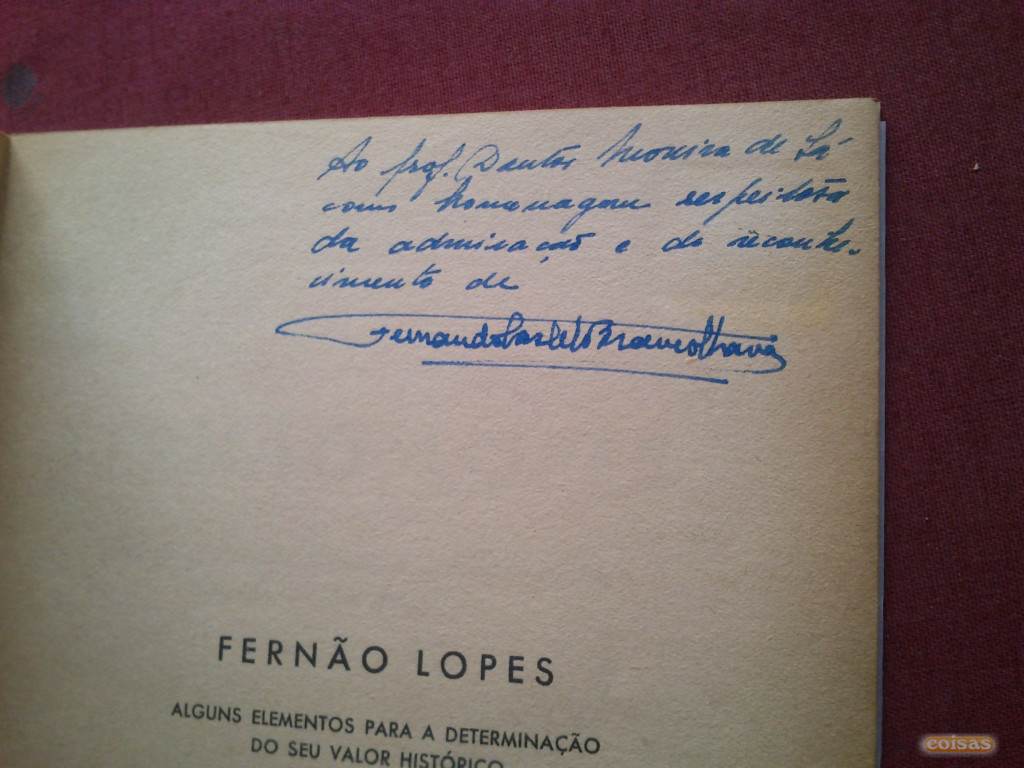 Ao prof. Doutor Moreira de Sá
como homenagem respeitosa
da admiração e do reconhe-
cimento de
Fernando Castelo Branco Chaves
FERNÃO LOPES
ALGUNS ELEMENTOS PARA A DETERMINAÇÃO
DO SEU VALOR HISTÓRICO
coisas